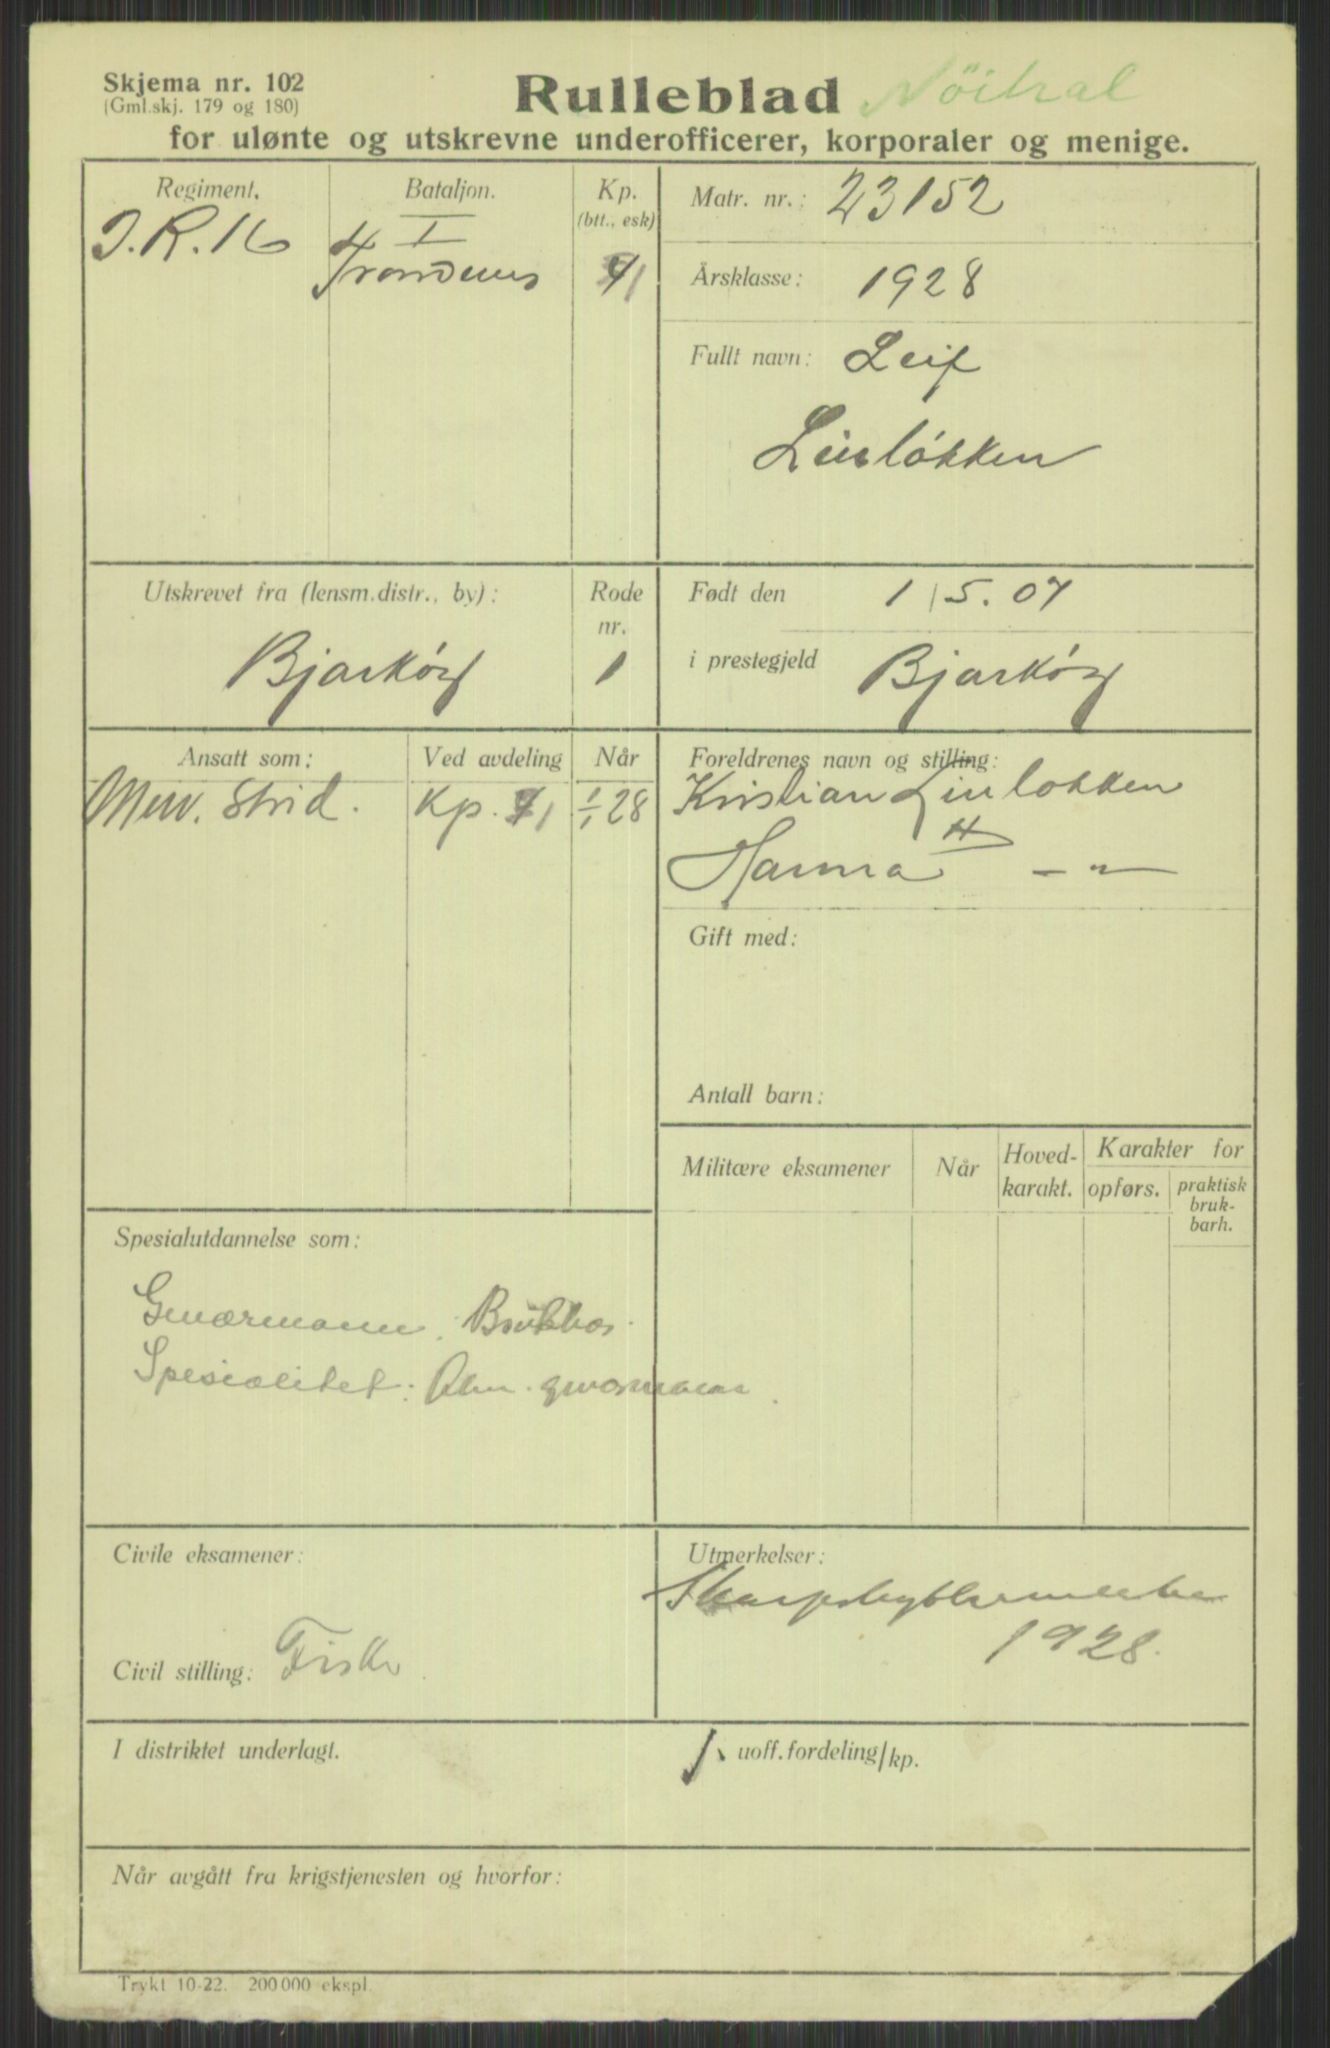 Skjema nr. 102
(Gml.skj. 179 og 180)
Rulleblad Nöitral
for ulønte og utskrevne underofficerer, korporaler og menige.
Regiment. Bataljon. Kp. (btt., esk)
I.R. 16 I
Trondenes
Matr. nr.: 23152
Årsklasse: 1928
Fullt navn: Leif
Linløkken
Utskrevet fra (lensm.distr., by): Rode nr.
Bjarkøy 1
Født den 1/5.07
i prestegjeld Bjarkøy
Ansatt som: Ved avdeling Når
Men. Strid. Kp. 1 1/1 28
Foreldrenes navn og stilling:
Kristian Linløkken
Hanna — " —
Gift med:
Antall barn:
Militære eksamener Når Hoved-karakt. Karakter for
opførs. praktisk bruk-barh.
Spesialutdannelse som:
Geværmann. Brukbar.
Spesialitet: Alm. geværmann.
Civile eksamener:
Civil stilling: Fisker
Utmerkelser:
Skarpskyttermerke
1928.
I distriktet underlagt.
1. uoff.fordeling/kp.
Når avgått fra krigstjenesten og hvorfor:
Trykt 10-22. 200 000 ekspl.